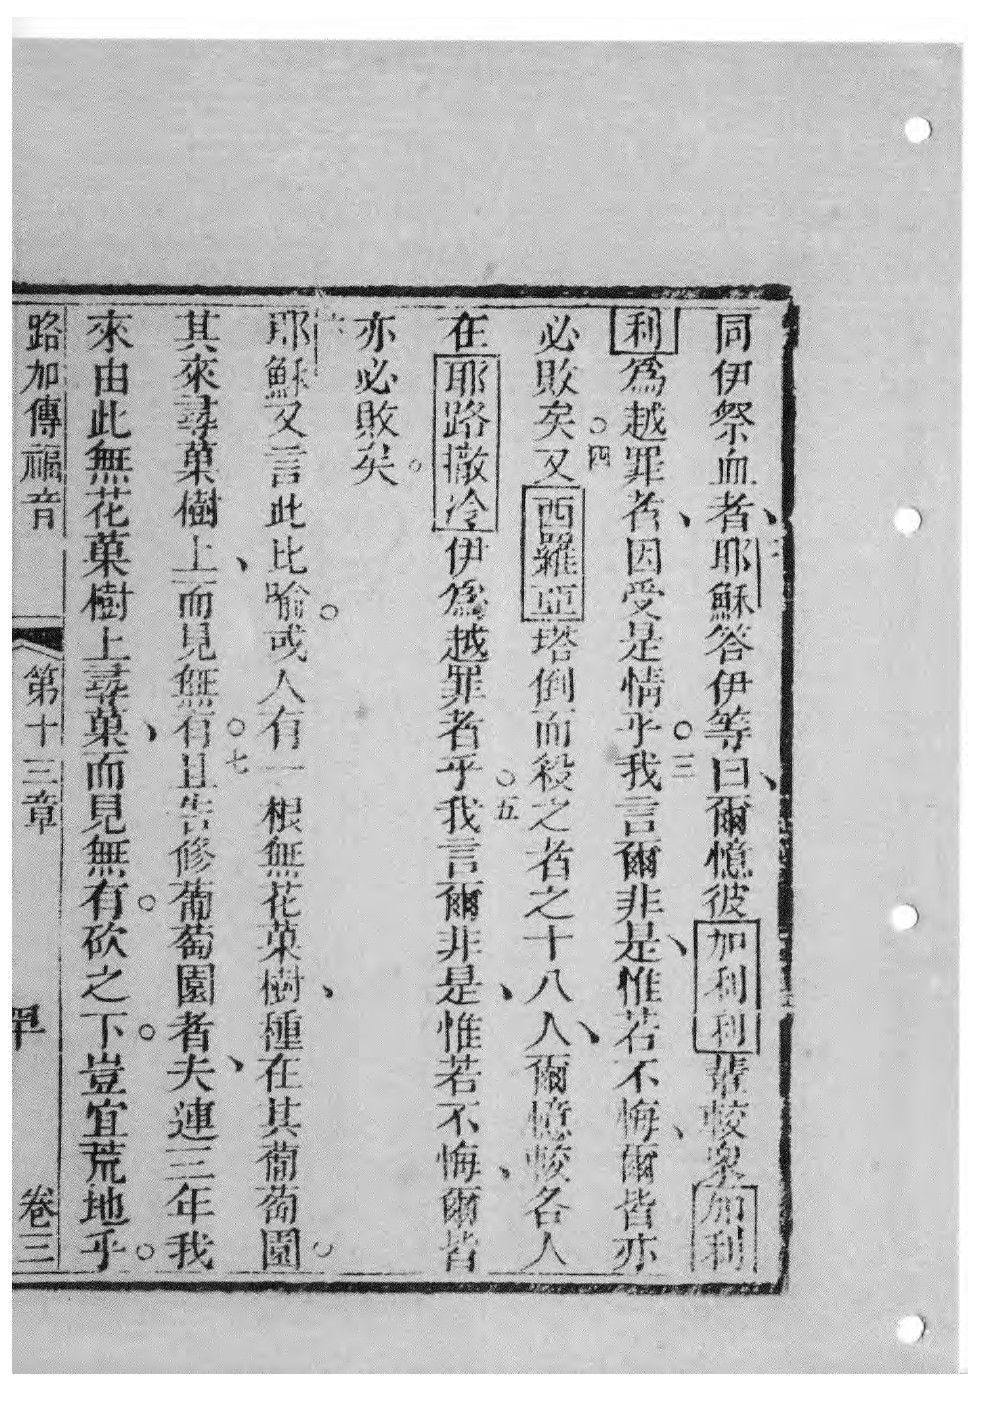 同伊祭血者、二耶穌答伊等曰、爾憶彼加利利輩較衆加利
利爲越罪者、因受是情乎。三我言爾非是、惟若不悔、爾皆亦
必敗矣。四又西羅亞塔倒而殺之者之十八人、爾憶較各人
在耶路撒冷伊爲越罪者乎。五我言爾非是、惟若不悔、爾皆
亦必敗矣。
六耶穌又言此比喻。或人有一根無花菓樹、種在其葡萄園。
其來尋菓樹上、而見無有。七且告修葡萄園者、夫連三年我
來由此無花菓樹上尋菓、而見無有。砍之下。豈宜荒地乎。
路加傳福音 第十三章 卷三